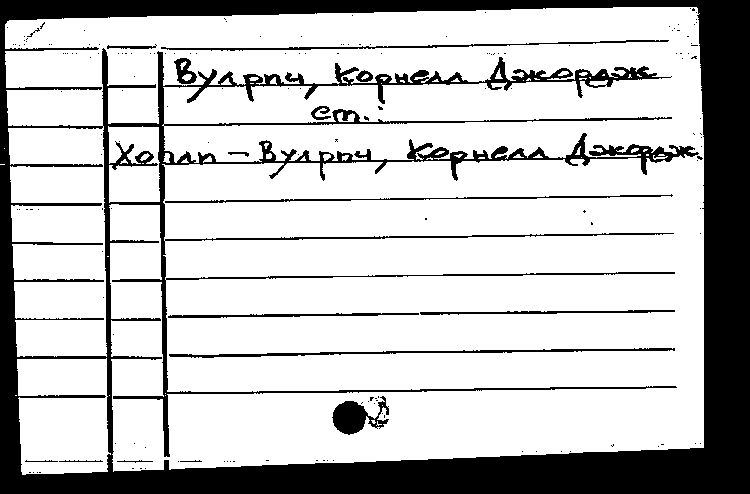 Вулрпч, Корнелл Джордж
ст.:
Хопли - Вулрпч, Корнелл Джордж.